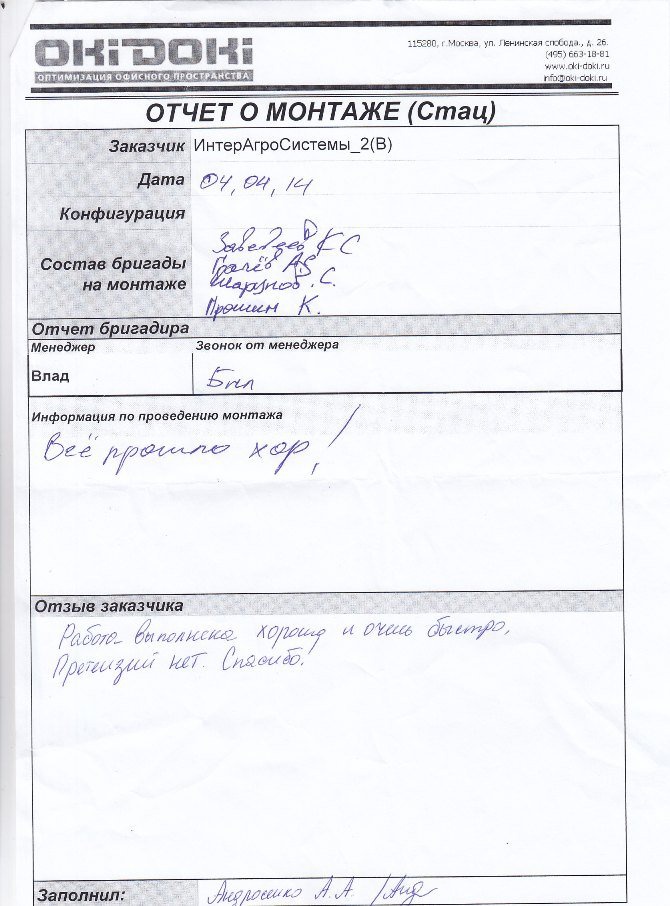 OKiDOKi
ОПТИМИЗАЦИЯ ОФИСНОГО ПРОСТРАНСТВА
115280, г.Москва, ул. Ленинская слобода., д. 26.
(495) 663-18-81
www.oki-doki.ru
info@oki-doki.ru
ОТЧЕТ О МОНТАЖЕ (Стац)
Заказчик ИнтерАгроСистемы_2(В)
Дата 04,04,14
Конфигурация
Состав бригады
на монтаже
К С
Грачёв
С.
Прошин К.
Отчет бригадира
Менеджер Звонок от менеджера
Влад Был
Информация по проведению монтажа
Всё прошло хор,!
Отзыв заказчика
Работа выполнена хорошо и очень быстро,
Претензий нет. Спасибо.
Заполнил: Андросенко А.А.